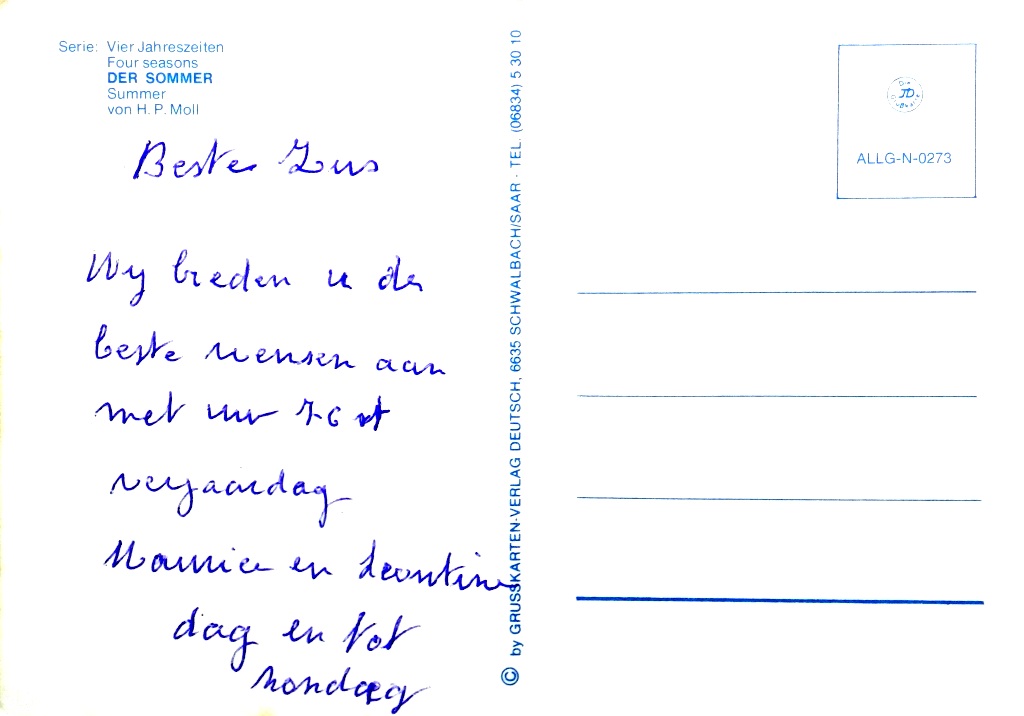 Serie: Vier Jahreszeiten
Four seasons
DER SOMMER
Summer
von H. P. Moll
Beste Zus
Wy bieden u de
beste wensen aan
met uw 76 st
verjaardag
Maurice en Leontine
dag en tot
zondag
© by GRUSSKARTEN-VERLAG DEUTSCH, 6635 SCHWALBACH/SAAR · TEL. (06834) 5 30 10
JD
ALLG-N-0273